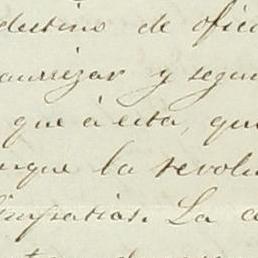 destino de ofic
aurizar y segui
que à esta, que
nque la revolu
impatias. La a